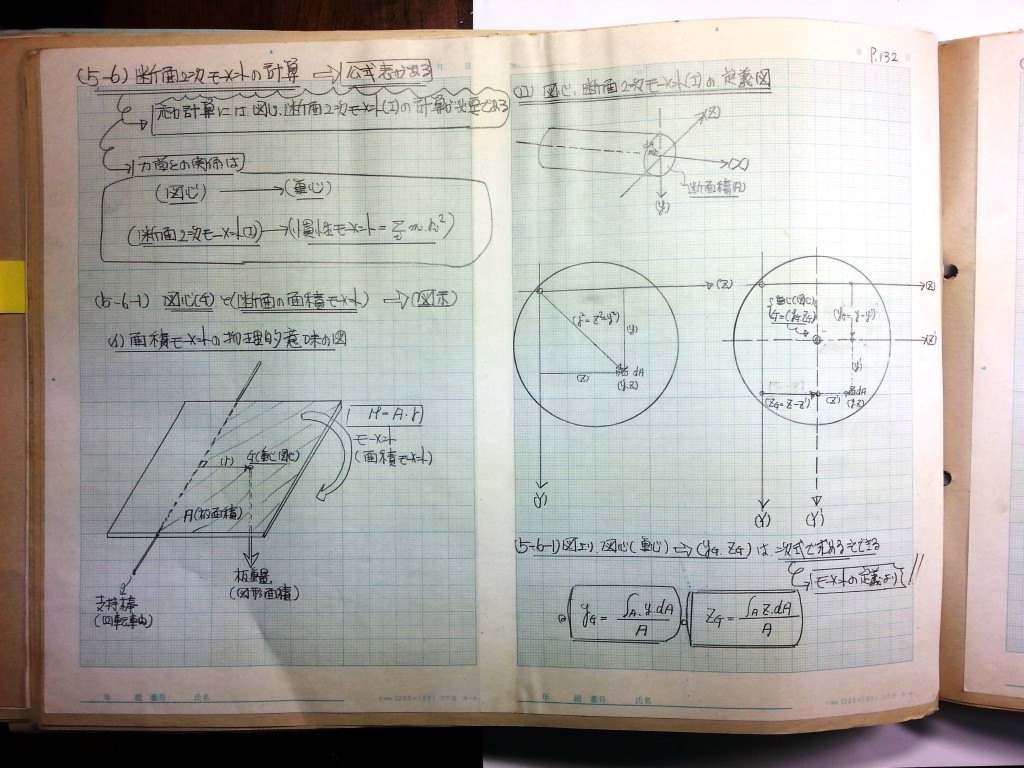 (5-6) 断面2次モーメントの計算 ⇒ 公式表がある
応力計算には図心、断面2次モーメント(I)の計算が必要である
力学との関係は
(図心) → (重心)
(断面2次モーメント(I)) → (慣性モーメント = Σ m・r²)
(5-6-1) 図心(G)と(断面の面積モーメント) ⇒ (図示)
(イ) 面積モーメントの物理的意味の図
M = A・r
モーメント
(面積モーメント)
(r)
G(重心、図心)
A(板面積)
板重量
(図形面積)
支持棒
(回転軸)
年 組 番号 氏名
P.132
(ロ) 図心、断面2次モーメント(I)の定義図
(Z)
dA
(X)
断面積(A)
(y)
(Z)
(r²=z²+y²)
(y)
(Z)
dA
(y.z)
(Y)
(Z)
重心(図心)
G=(yG ZG)
(yG=y-y')
(Z')
(y')
(ZG=Z-Z')
(Z')
dA
(y.z)
(Y)
(Y')
(5-6-1)図より、図心(重心) ⇒ (yG. ZG) は、次式で求める事ができる
モーメントの定義より
yG = ∫A. y. dA / A
ZG = ∫A Z. dA / A
年 組 番号 氏名